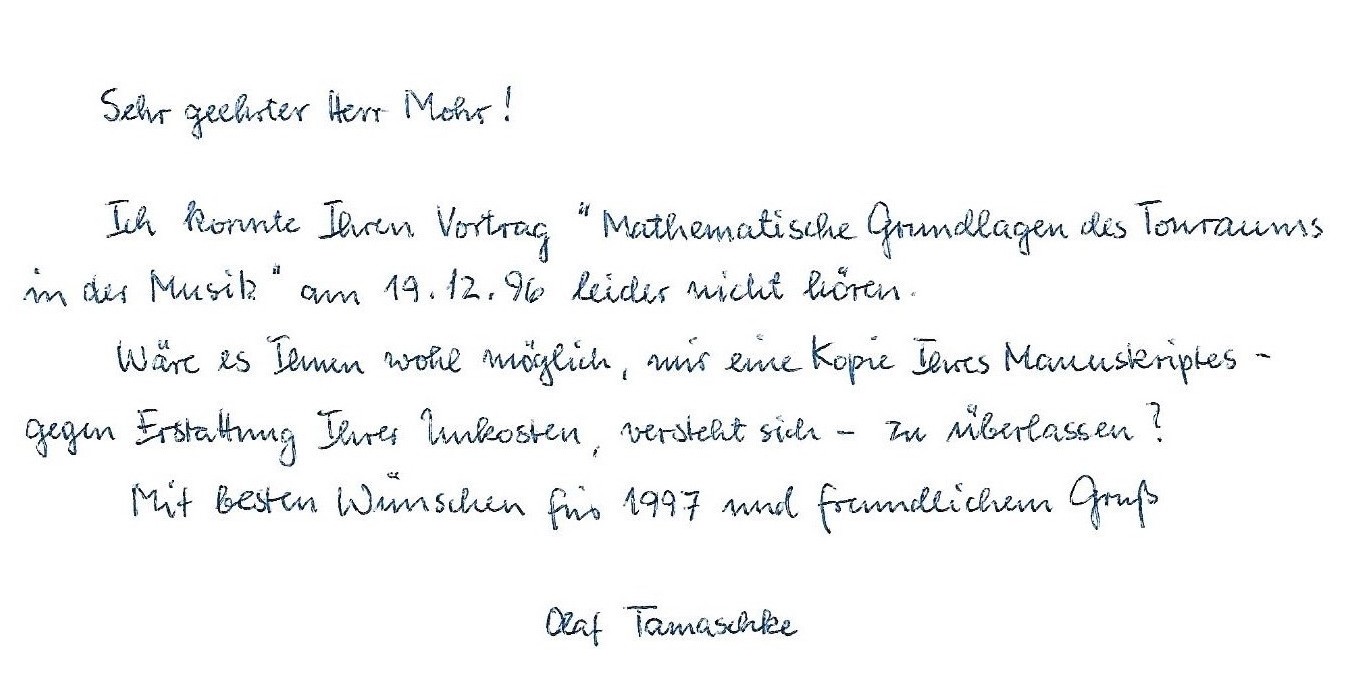 Sehr geehrter Herr Mohr!
Ich konnte Ihren Vortrag "Mathematische Grundlagen des Tonraums
in der Musik" am 19.12.96 leider nicht hören.
Wäre es Ihnen wohl möglich, mir eine Kopie Ihres Manuskriptes -
gegen Erstattung Ihrer Unkosten, versteht sich - zu überlassen?
Mit besten Wünschen für 1997 und freundlichem Gruß
Olaf Tamaschke